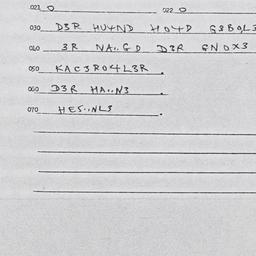 021 0 022 0
030 D3R HU4ND H04D G3B9L3
040 3R NA..GD D3R GN0X3
050 KAC3R04L3R.
060 D3R HA..N3
070 HES..NL3.